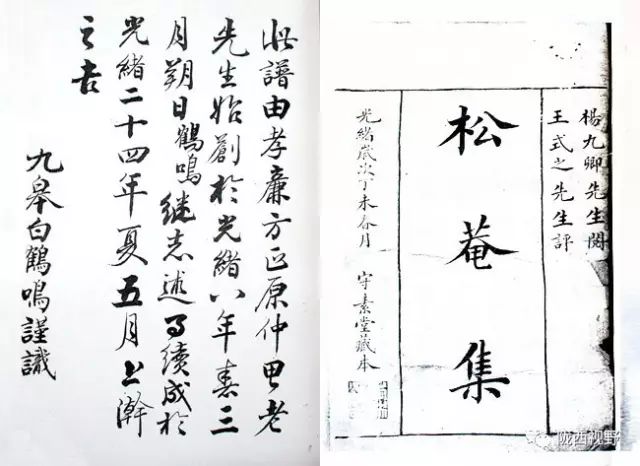 此譜由孝廉方正原仲老
先生始創於光緒八年春三
月朔日鶴鳴継志述事續成於
光緒二十四年夏五月上澣
之吉
九皋白鶴鳴謹識
楊九卿先生閱
王式之先生評
松菴集
光緒歲次丁未春月 守素堂藏本
陇西视野